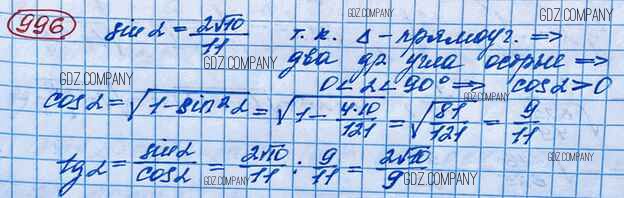 996
sin α = 2√10/11 т. к. Δ - прямоуг. =>
два др. угла острые =>
0 < α < 90° => cos α > 0
cos α = √(1 - sin²α) = √(1 - 4·10/121) = √(81/121) = 9/11
tg α = sin α/cos α = 2√10/11 : 9/11 = 2√10/9
GDZ.COMPANY
GDZ.COMPANY
GDZ.COMPANY
GDZ.COMPANY
GDZ.COMPANY
GDZ.COMPANY
GDZ.COMPANY
GDZ.COMPANY
GDZ.COMPANY